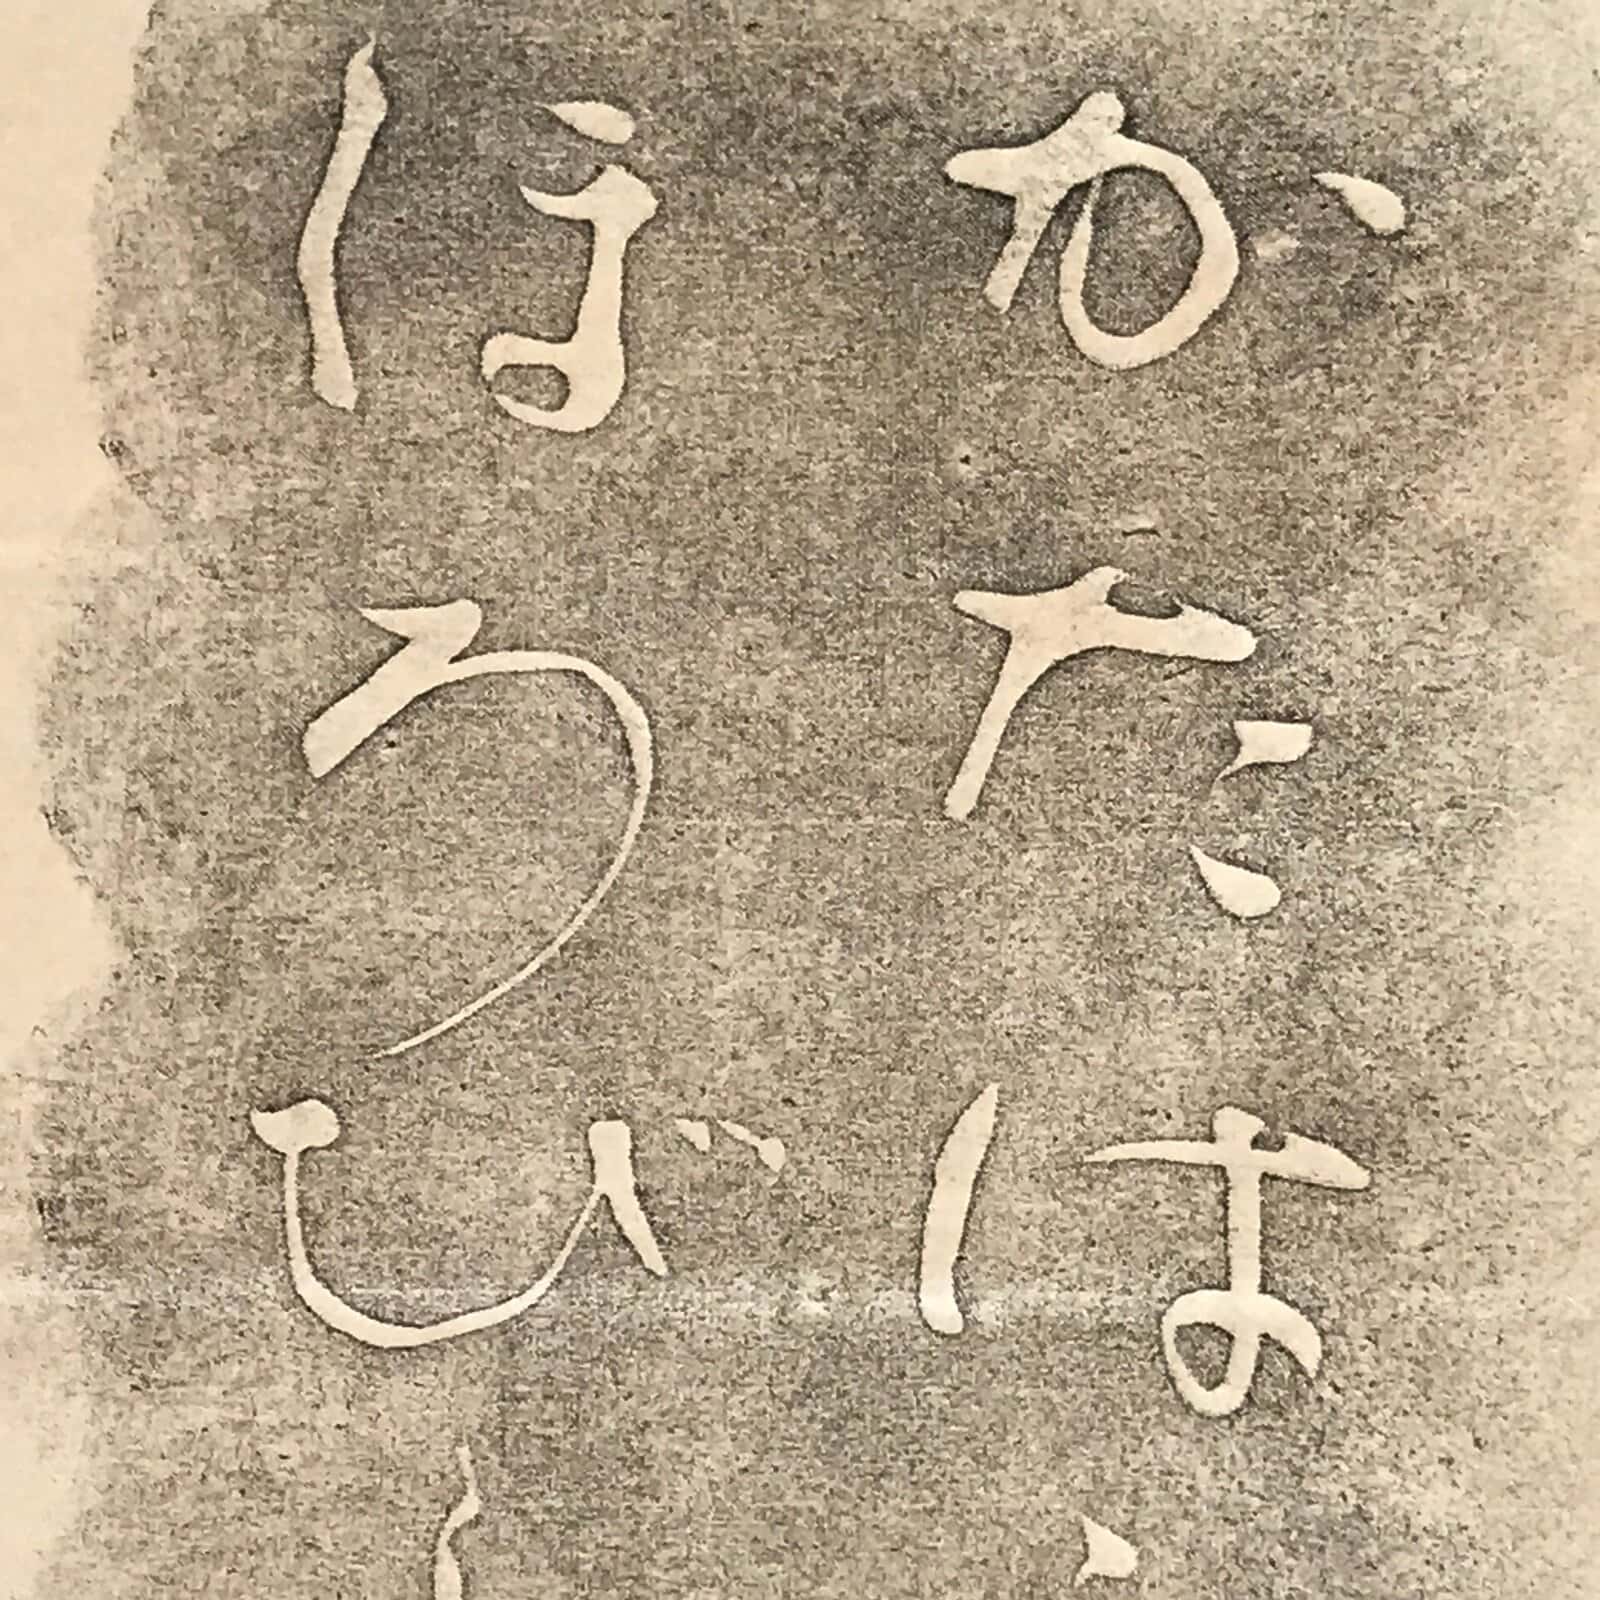 かたは
ほろび